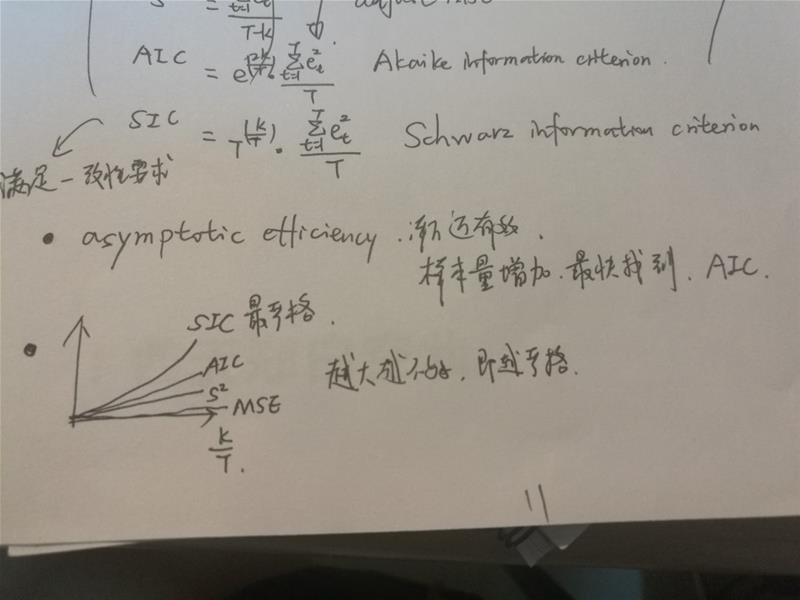 S² = Σ e_t² / T-k adjust MSE
AIC = e^(2k/T) · Σ_{t=1}^{T} e_t² / T Akaike information criterion.
SIC = T^(k/T) · Σ_{t=1}^{T} e_t² / T Schwarz information criterion
满足一致性要求
• asymptotic efficiency. 渐近有效.
样本量增加.最快找到.AIC.
SIC 最严格.
AIC
S²
MSE
k/T.
越大越不好,即越严格.
11